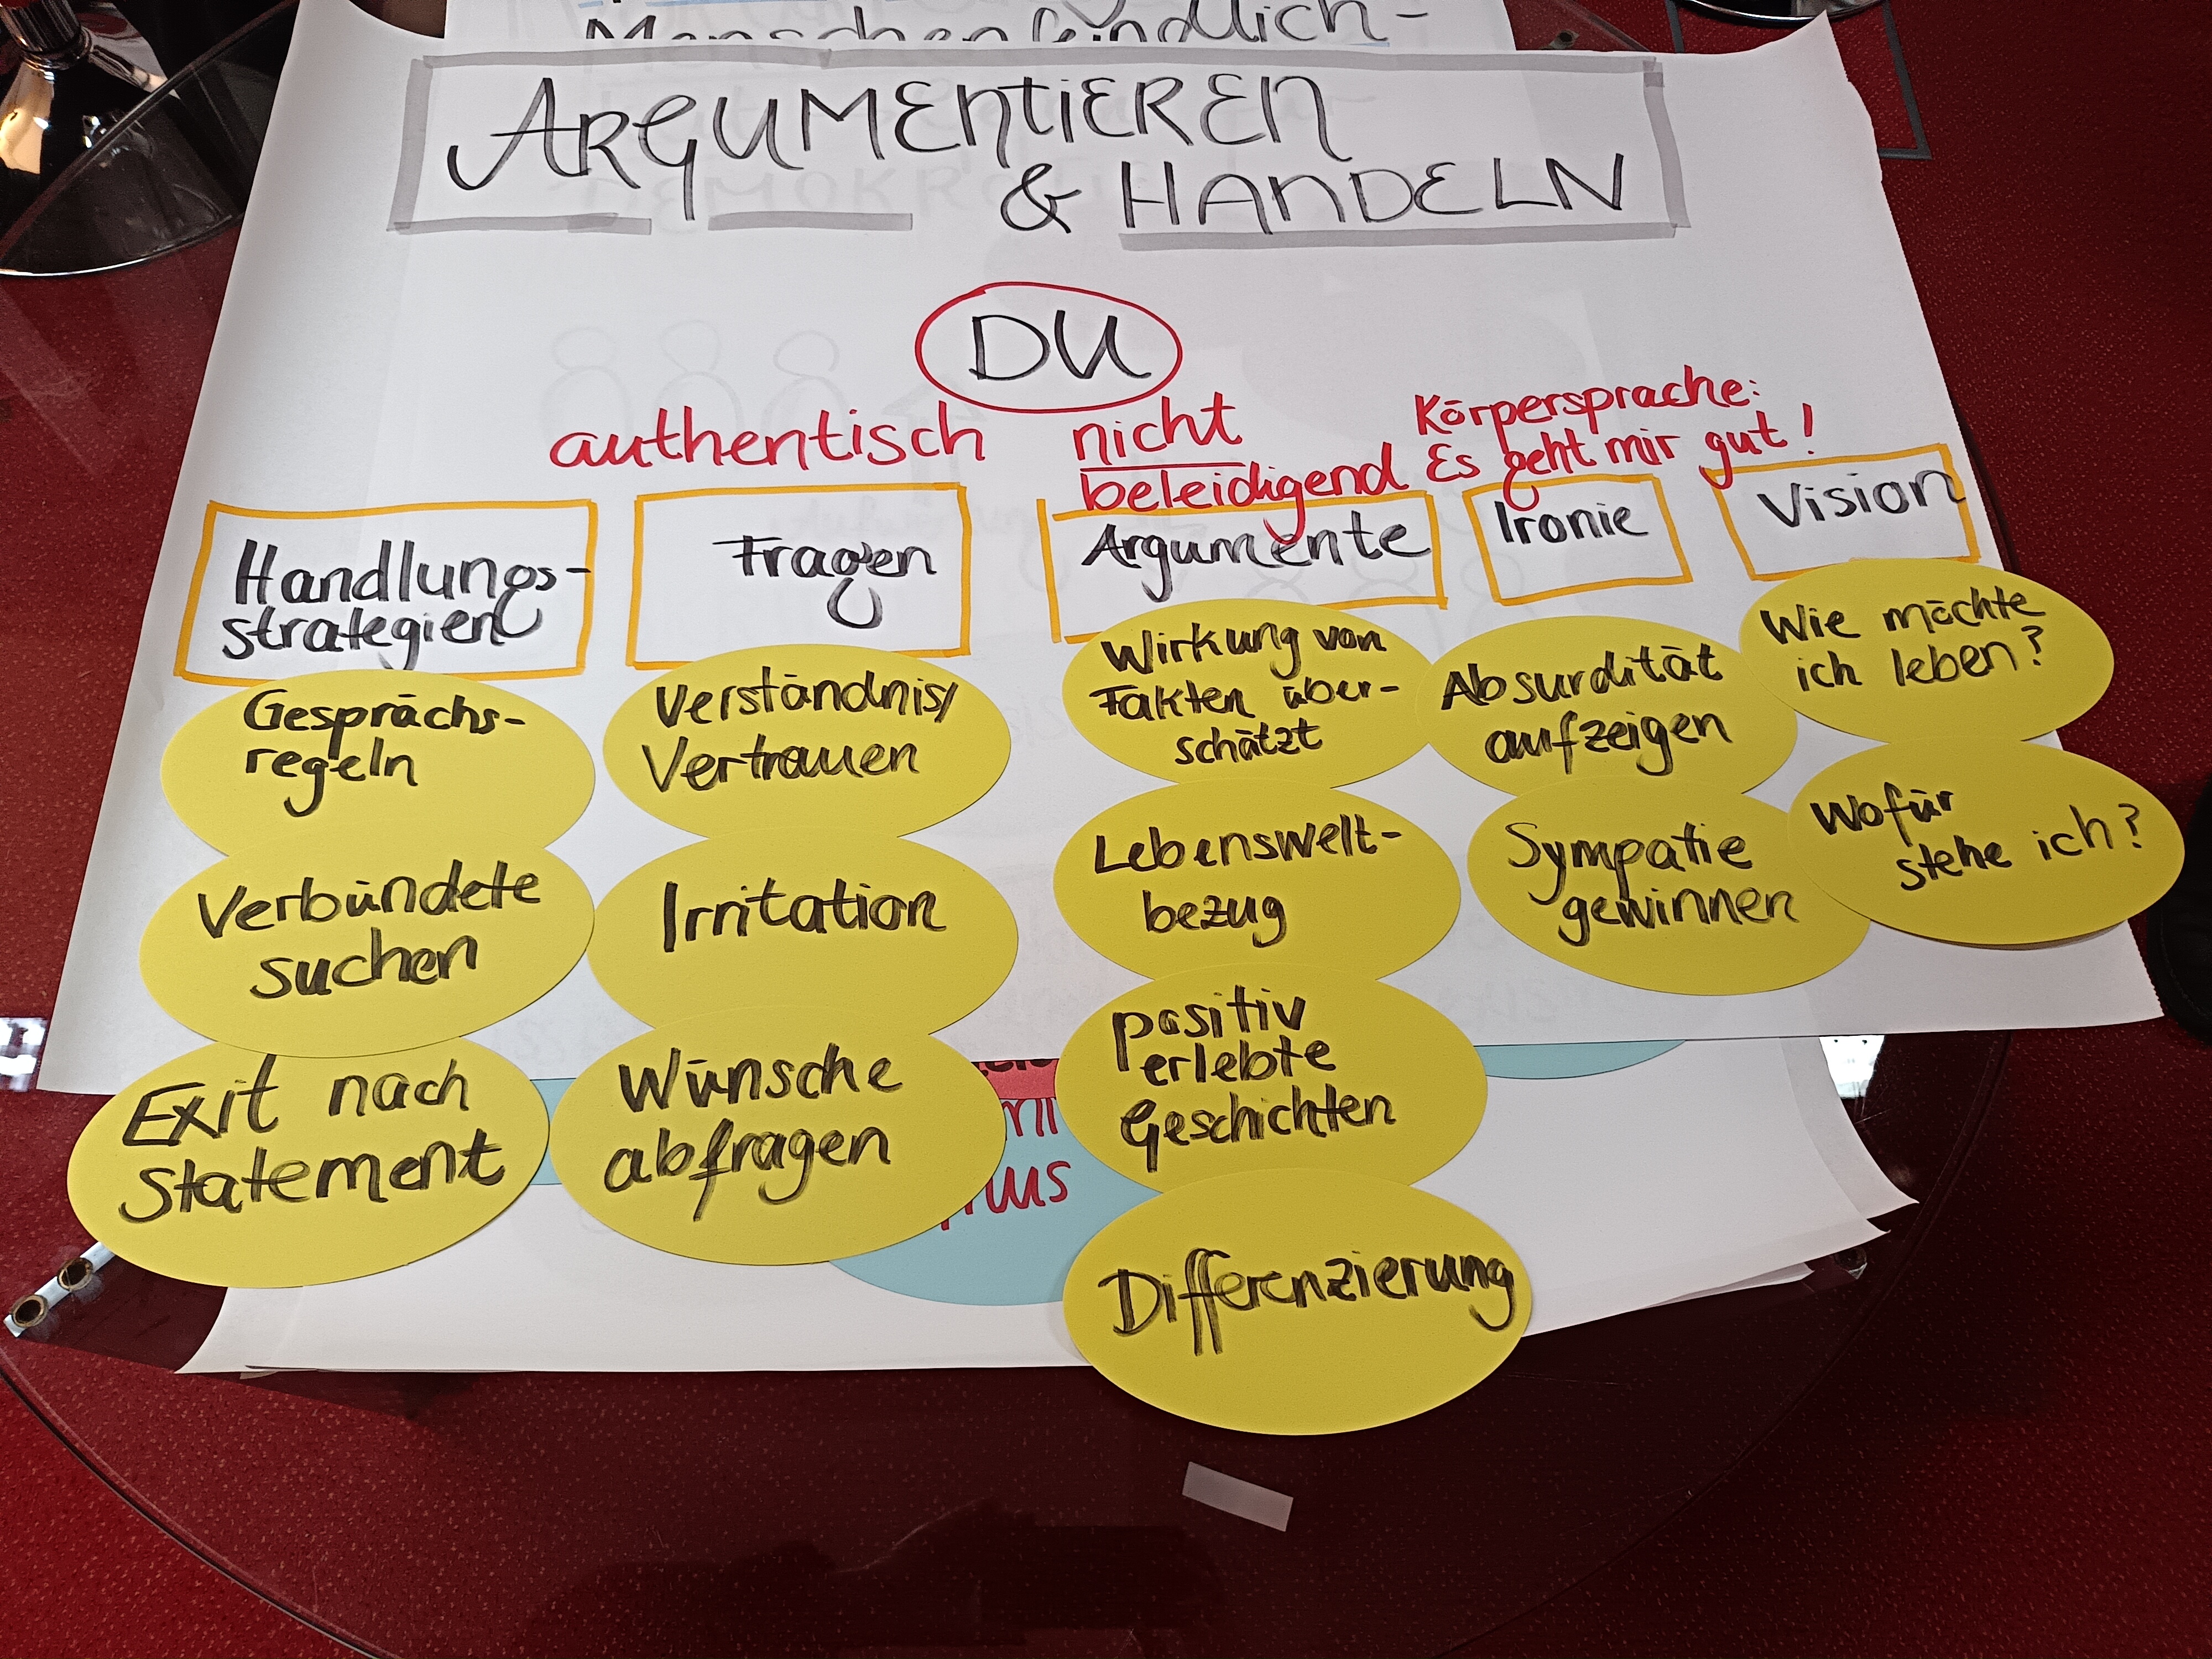 Menschenfeindlich-
ARGUMENTIEREN
& HANDELN
DU
authentisch
nicht
beleidigend
Körpersprache:
Es geht mir gut!
Handlungs-
strategien
Gesprächs-
regeln
Verbündete
suchen
Exit nach
Statement
Fragen
Verständnis/
Vertrauen
Irritation
Wünsche
abfragen
Argumente
Wirkung von
Fakten über-
schätzt
Lebenswelt-
bezug
positiv
erlebte
Geschichten
Differenzierung
Ironie
Absurdität
aufzeigen
Sympatie
gewinnen
Vision
Wie möchte
ich leben?
Wofür
stehe ich?